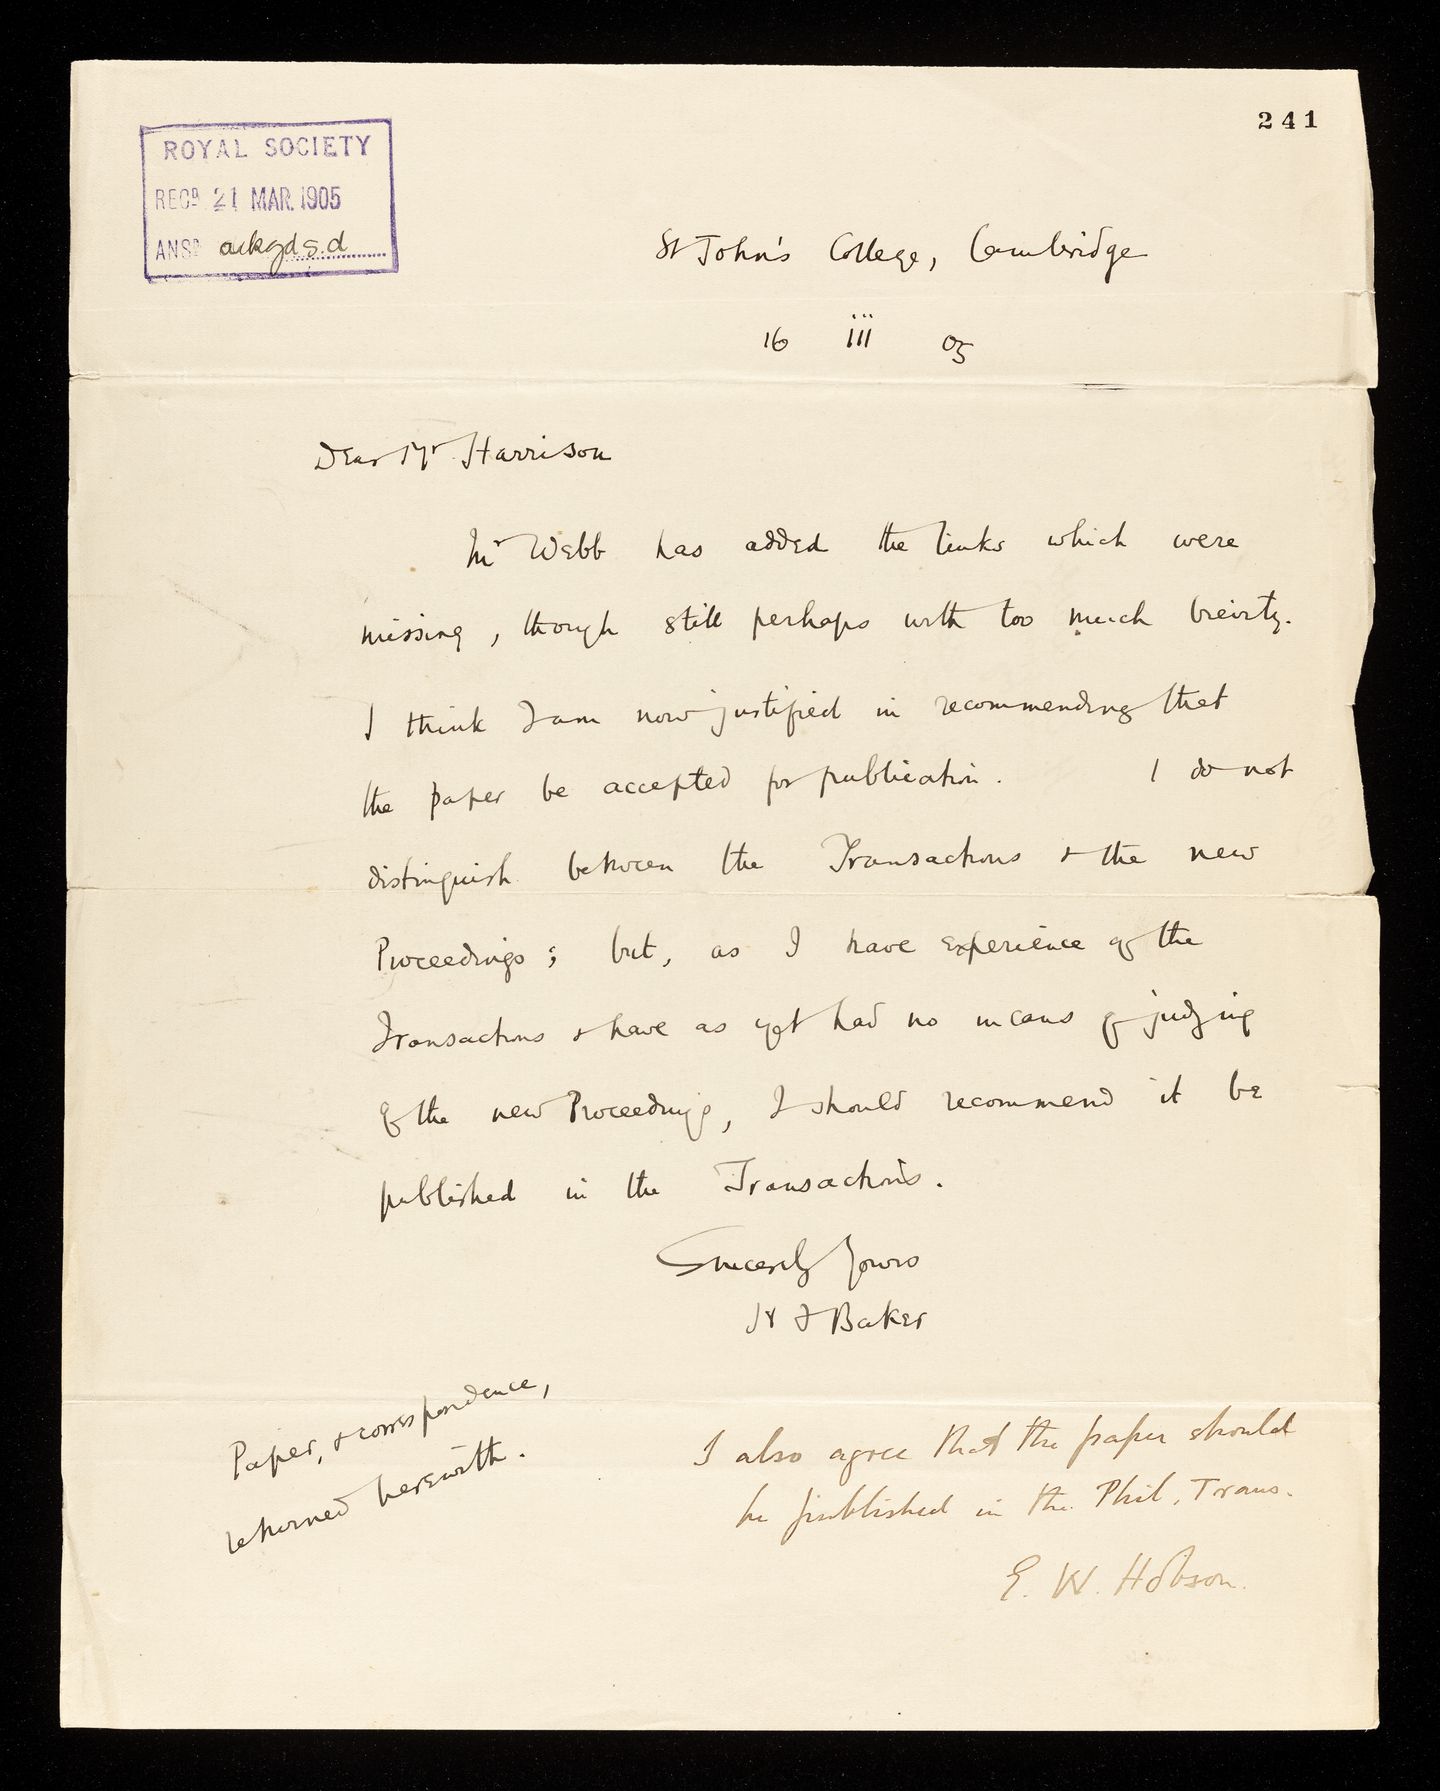 241
ROYAL SOCIETY
RECD. 21 MAR. 1905
ANSD. ackgd s.d
St John's College, Cambridge
16 iii 05
Dear Mr Harrison
Mr Webb has added the links which were
missing, though still perhaps with too much brevity.
I think I am now justified in recommending that
the paper be accepted for publication. I do not
distinguish between the Transactions & the new
Proceedings; but, as I have experience of the
Transactions & have as yet had no means of judging
of the new Proceedings, I should recommend it be
published in the Transactions.
Sincerely Yours
H F Baker
Paper, & correspondence,
returned herewith.
I also agree that the paper should
be published in the Phil. Trans.
E. W. Hobson.